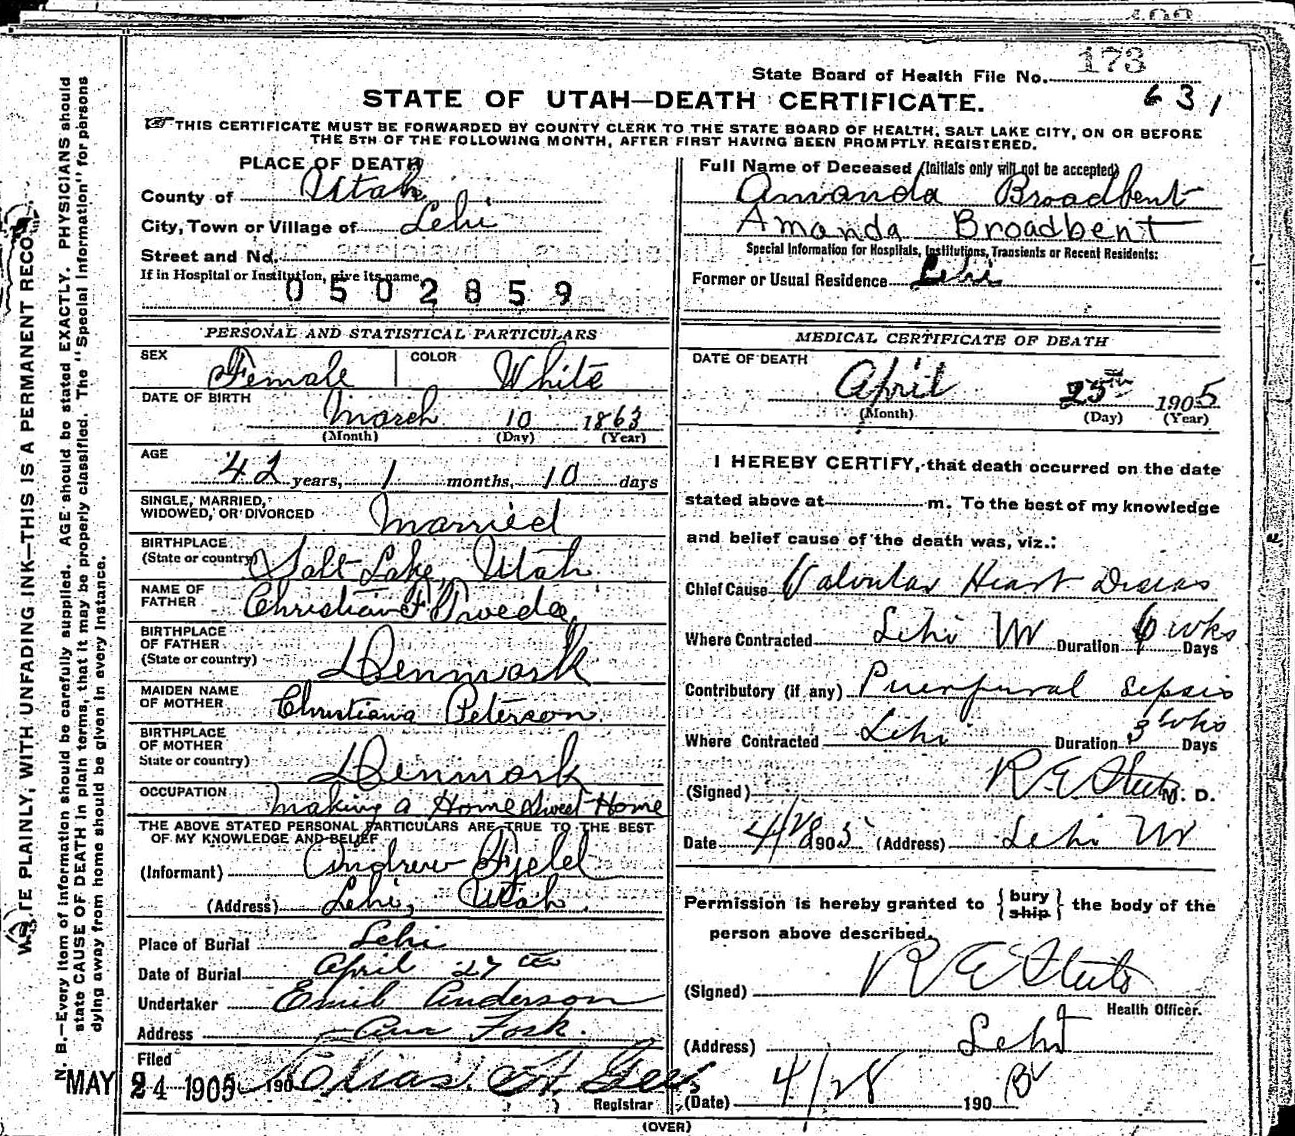 173
State Board of Health File No.
631
STATE OF UTAH—DEATH CERTIFICATE.
THIS CERTIFICATE MUST BE FORWARDED BY COUNTY CLERK TO THE STATE BOARD OF HEALTH, SALT LAKE CITY, ON OR BEFORE
THE 5TH OF THE FOLLOWING MONTH, AFTER FIRST HAVING BEEN PROMPTLY REGISTERED.
PLACE OF DEATH
County of Utah
City, Town or Village of Lehi
Street and No.
If in Hospital or Institution, give its name
0502859
PERSONAL AND STATISTICAL PARTICULARS
SEX Female COLOR White
DATE OF BIRTH March 10 1863
(Month) (Day) (Year)
AGE 42 years, 1 months, 10 days
SINGLE, MARRIED,
WIDOWED, OR DIVORCED Married
BIRTHPLACE
(State or country) Salt Lake, Utah
NAME OF
FATHER Christian F Tweda
BIRTHPLACE
OF FATHER
(State or country) Denmark
MAIDEN NAME
OF MOTHER Christiana Peterson
BIRTHPLACE
OF MOTHER
State or country) Denmark
OCCUPATION making a Home Sweet Home
THE ABOVE STATED PERSONAL PARTICULARS ARE TRUE TO THE BEST
OF MY KNOWLEDGE AND BELIEF
(Informant) Andrew Fjeld
(Address) Lehi, Utah
Place of Burial Lehi
Date of Burial April 27th
Undertaker Emil Anderson
Address Am Fork.
Filed
MAY 24 1905 190 Elias A. Gee
Registrar
Full Name of Deceased (Initials only will not be accepted)
Amanda Broadbent
Amanda Broadbent
Special Information for Hospitals, Institutions, Transients or Recent Residents:
Former or Usual Residence Lehi
MEDICAL CERTIFICATE OF DEATH
DATE OF DEATH
April 25th 1905
(Month) (Day) (Year)
I HEREBY CERTIFY, that death occurred on the date
stated above at m. To the best of my knowledge
and belief cause of the death was, viz.:
Chief Cause Valvular Heart Diseas
Where Contracted Lehi Ut Duration 6 wks Days
Contributory (if any) Puerpural Sepsis
Where Contracted Lehi Duration 3 wks Days
(Signed) R E Steele M. D.
Date 4/28 1905 (Address) Lehi Ut
Permission is hereby granted to { bury ship } the body of the
person above described.
(Signed) R E Steele
Health Officer.
(Address) Lehi
(Date) 4/28 190
(OVER)
WRITE PLAINLY, WITH UNFADING INK—THIS IS A PERMANENT RECORD
N. B.—Every item of information should be carefully supplied. AGE should be stated EXACTLY. PHYSICIANS should
state CAUSE OF DEATH in plain terms, that it may be properly classified. The "Special Information" for persons
dying away from home should be given in every instance.